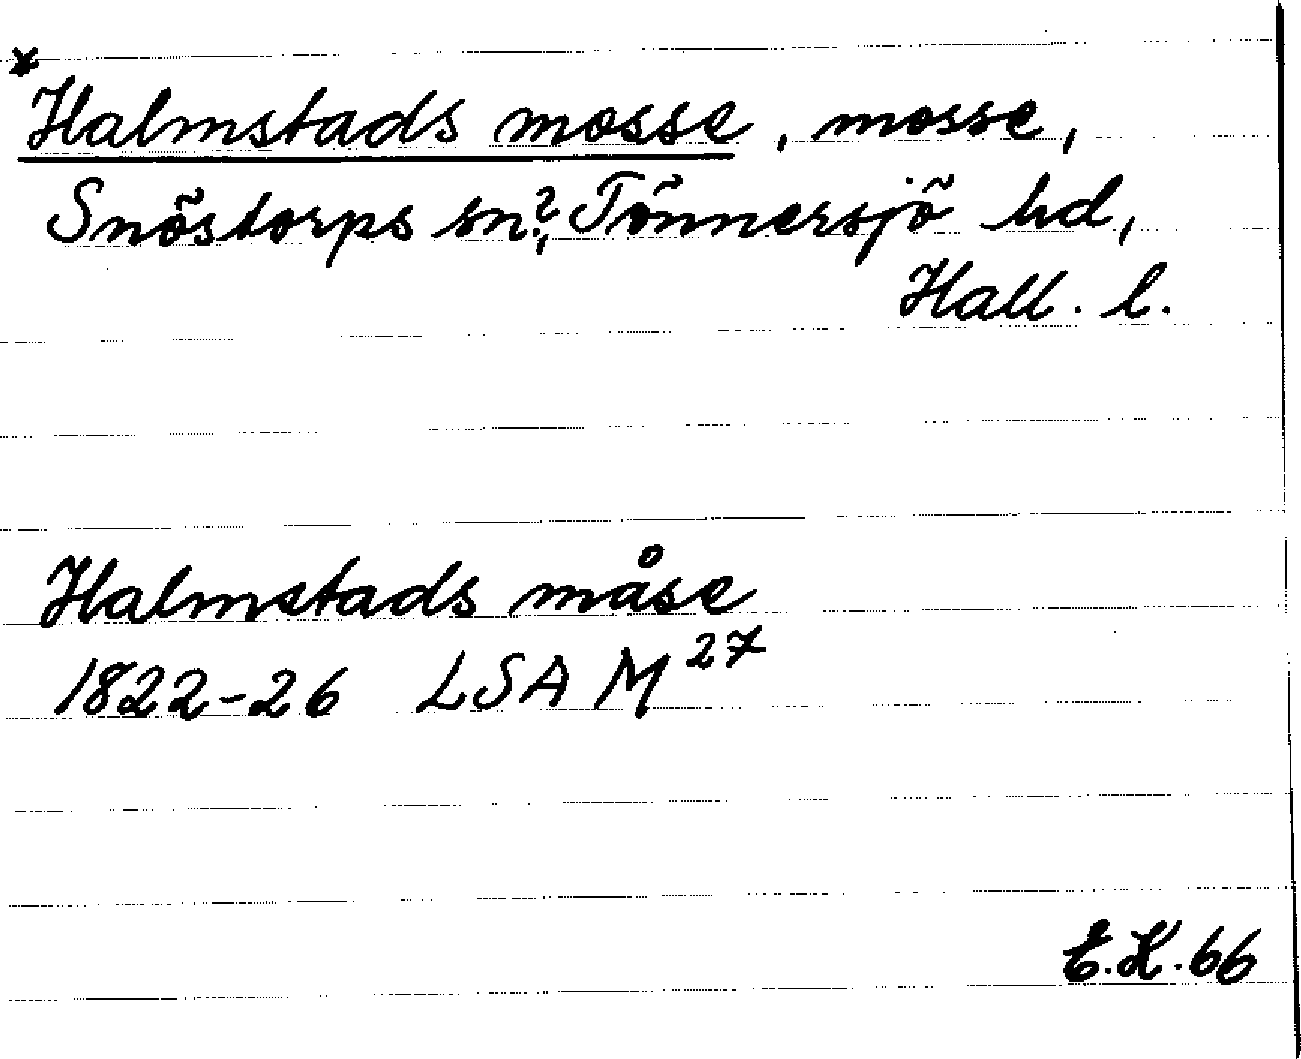 *Halmstads mosse, mosse,
Snöstorps sn?, Tönnersjö hd,
Hall. l.
Halmstads måse
1822-26 LSA M 27
E.K. 66